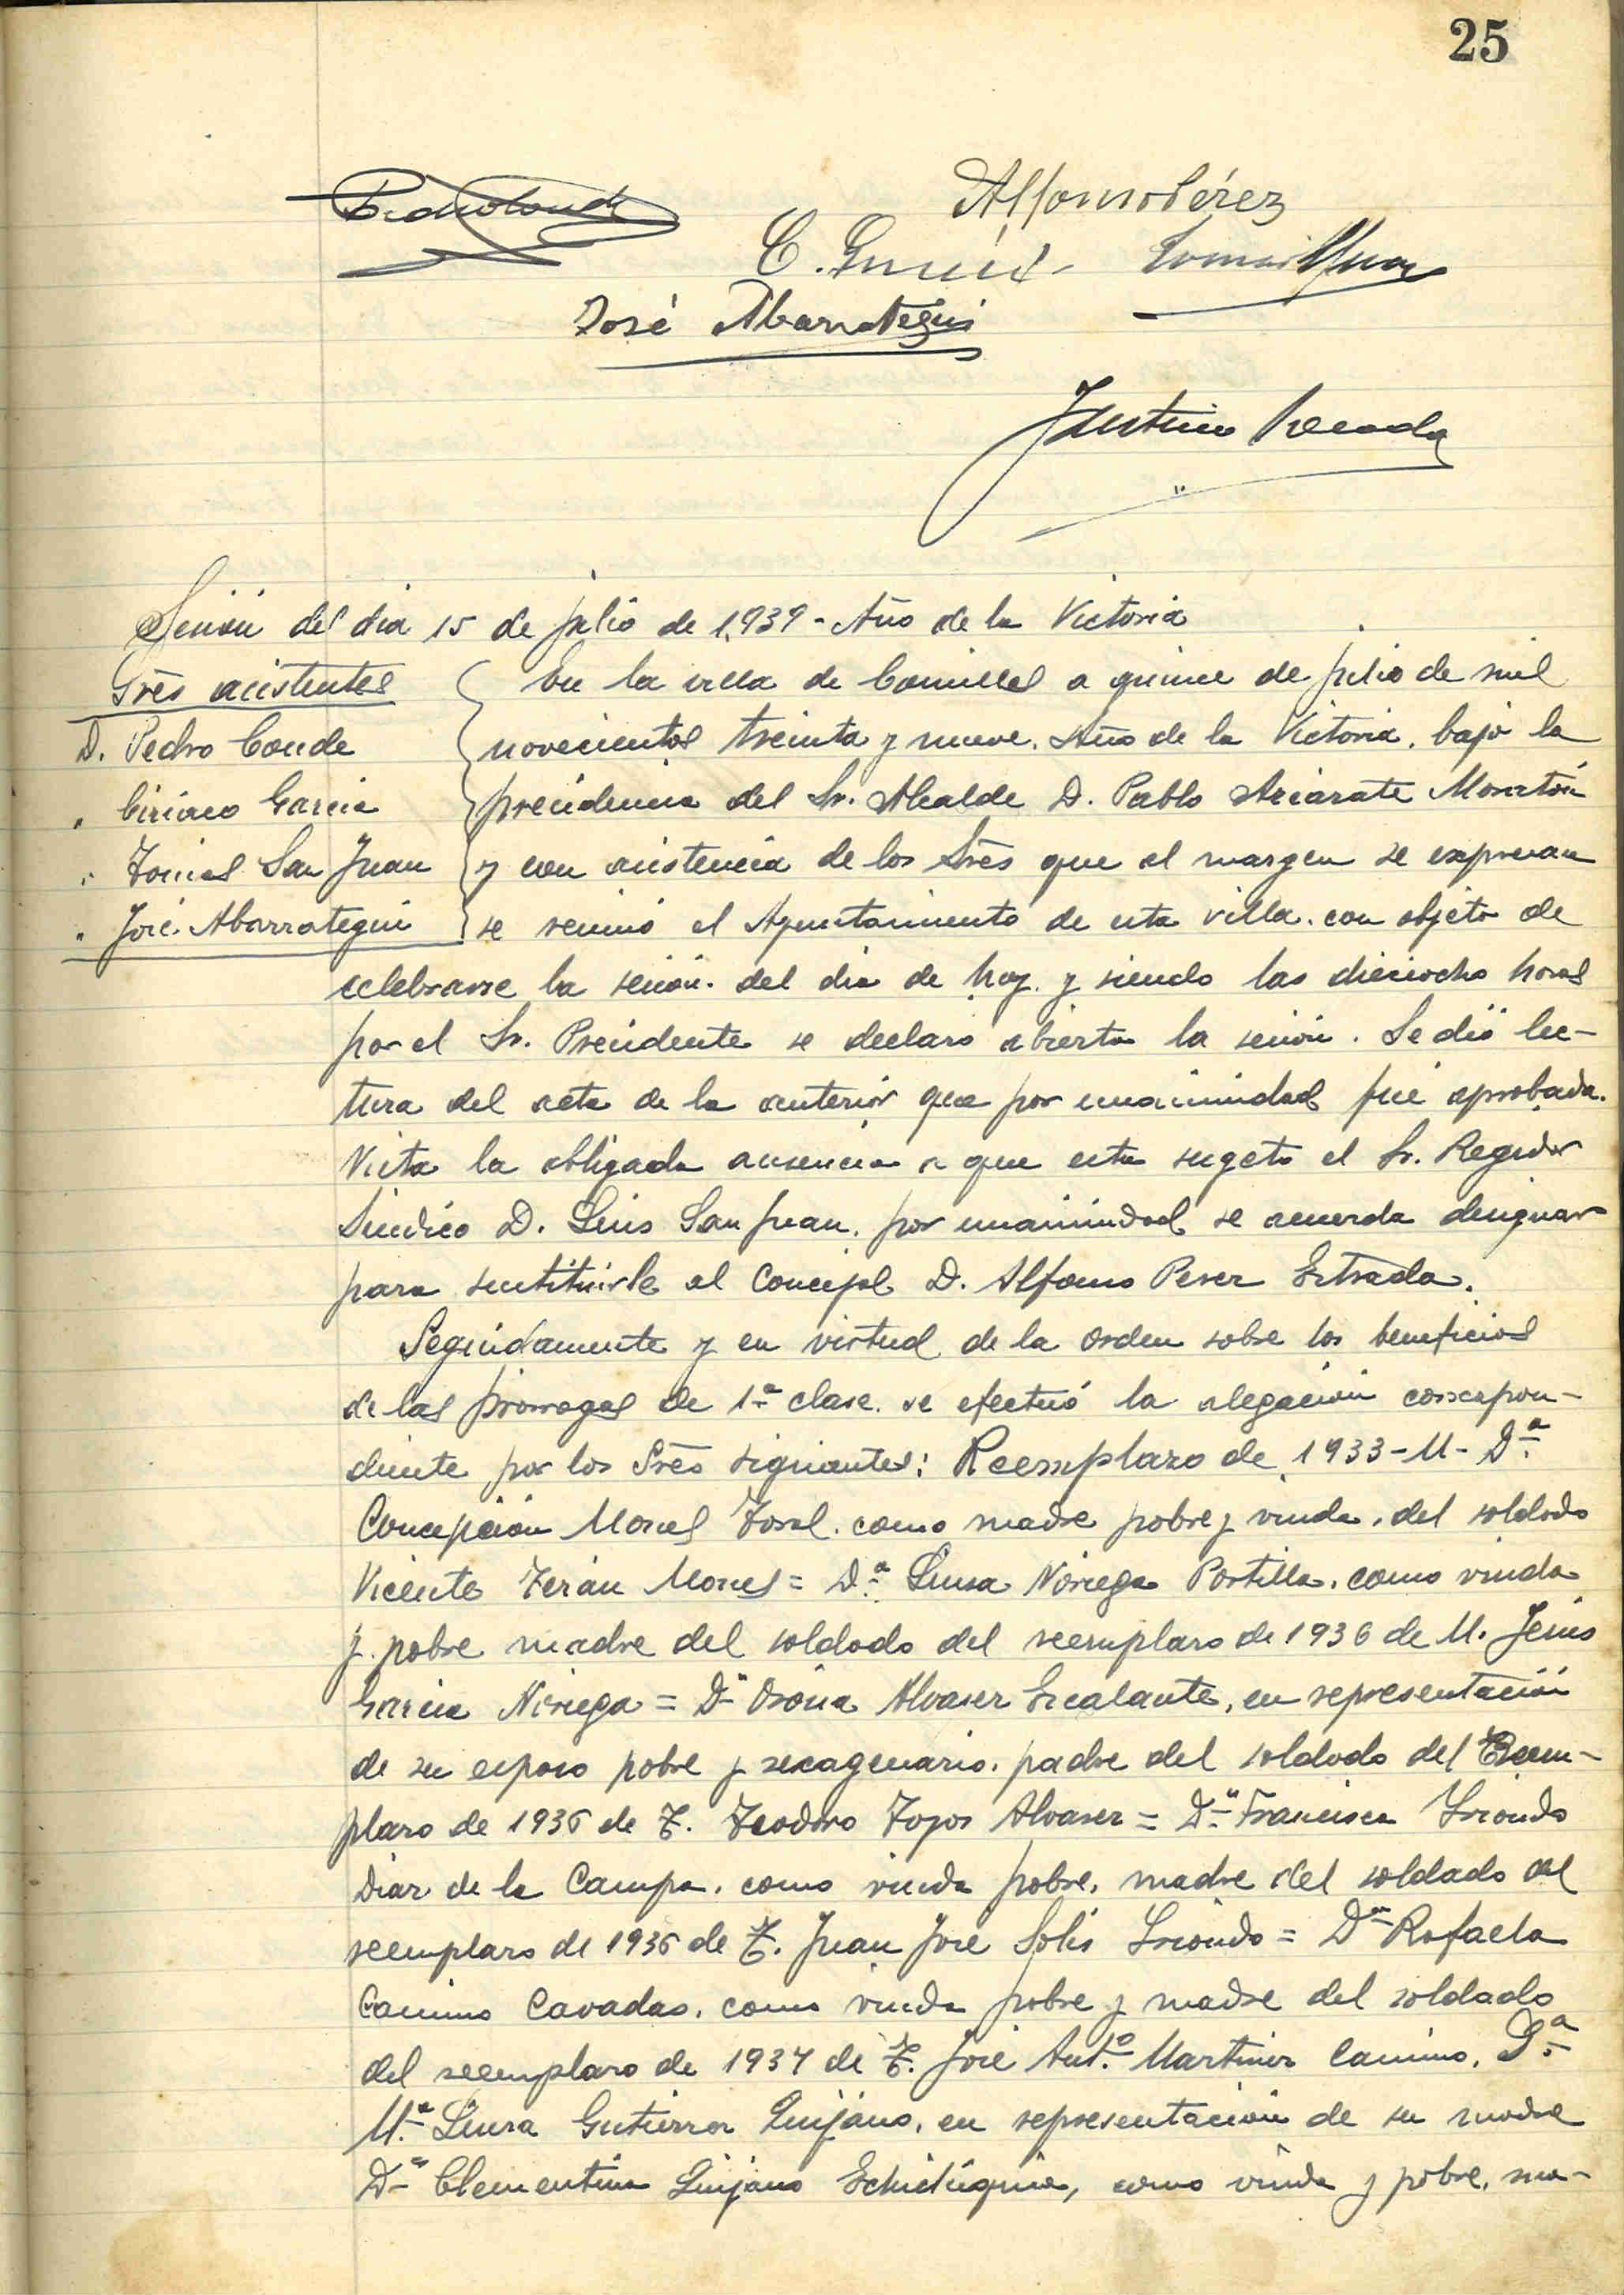 25
Pedro Conde
Alfonso Pérez
C. García
Tomás S Juan
José Abarrategui
Sesión del dia 15 de julio de 1.939 - Año de la Victoria
Srês asistentes
D. Pedro Conde
" Ciriaco Garcia
" Tomás San Juan
" José Abarrategui
En la villa de Comillas a quince de julio de mil
novecientos treinta y nueve. Año de la Victoria. bajo la
presidencia del Sr. Alcalde D. Pablo Azcárate
y con asistencia de los Srês que al margen se expresan
se reunió el Ayuntamiento de esta villa. con objeto de
celebrarse la sesión. del dia de hoy. y siendo las dieciocho horas
por el Sr. Presidente se declaro abierta la sesión. Se dió lec-
tura del acta de la anterior que por unanimidad fué aprobada.
Vista la obligada ausencia a que esta sugeto el Sr. Regidor
Sindico D. Luis San Juan. por unanimidad se acuerda designar
para sustituirle al Concejal D. Alfonso Perez Estrada.
Seguidamente y en virtud de la orden sobre los beneficios
de las prorrogas de 1ª clase. se efectuó la alegación correspon-
diente por los Srês siguientes: Reemplazo de 1933-M- Dª
Concepción Mones Toral. como madre pobre y viuda. del soldado
Vicente Terán Mones = Dª Luisa Noriega Portilla. como viuda
y pobre madre del soldado del reemplazo de 1936 de M. Jesús
Garcia Noriega = Dª Osoria Alvarez Escalante, en representación
de su esposo pobre y sexagenario. padre del soldado del Reem-
plazo de 1936 de T. Teodoro Toyos Alvarez = Dª Francisca Iriondo
Diaz de la Campa. como viuda pobre. madre del soldado del
reemplazo de 1936 de T. Juan José Solis Iriondo = Dª Rafaela
Camino Cavadas. como viuda pobre y madre del soldado
del reemplazo de 1937 de T. José Antº Martinez Camino. Dª
Mª Luisa Gutierrez Quijano. en representación de su madre
Dª Clementina Quijano, como viuda y pobre. ma-